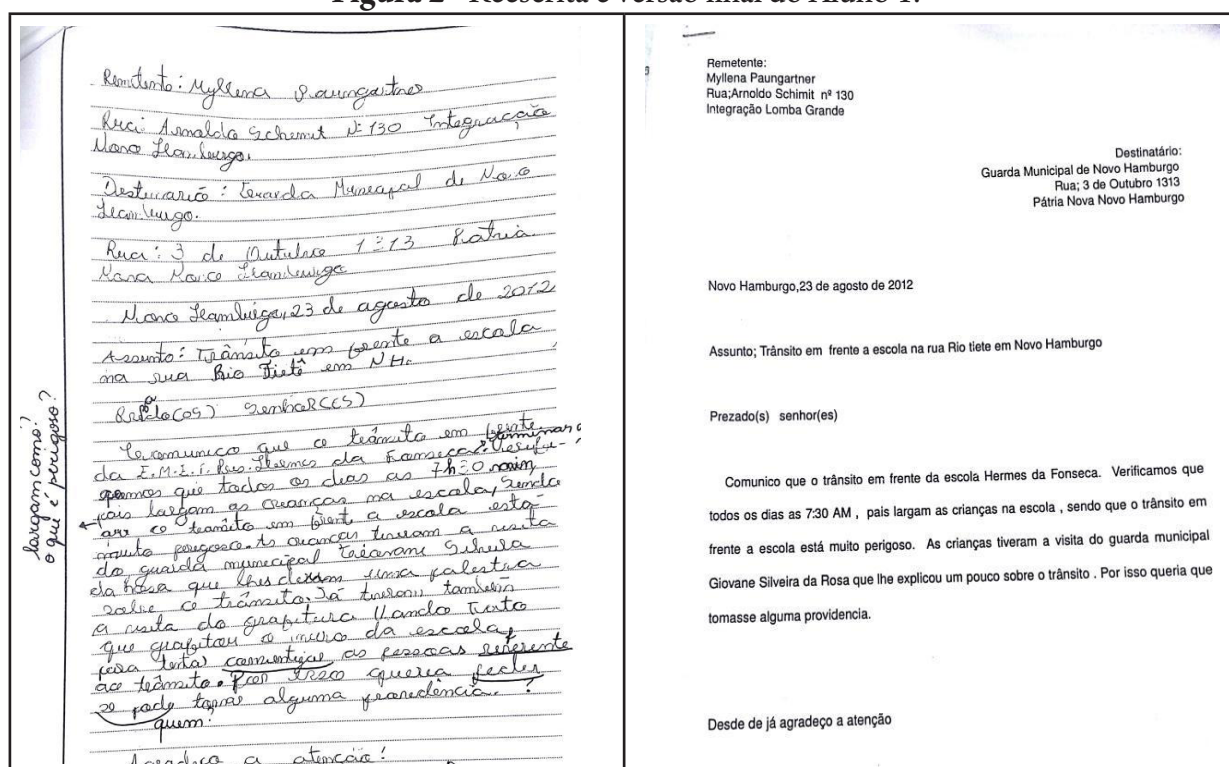 Figura 2 - Reescrita e versão final do Aluno 1.
Remetente: Myllena Paungartner
Rua: Arnaldo Schemit Nº 130 Integração
Novo Hamburgo.
Destinário: Guarda Municipal de Novo
Hamburgo.
Rua: 3 de Outubro 1313 Pátria
Nova Novo Hamburgo
Novo Hamburgo, 23 de agosto de 2012
Assunto: Trânsito em frente a escola
na rua Rio Tietê em NH.
(os) Senhor(es)
comunico que o trânsito em frente
da E.M.E.F. Pres. Hermes da Fonseca.
que todos os dias as 7h30 min,
pais largam as crianças na escola, sendo
o trânsito em frent a escola está
muito perigoso. As crianças tiveram a visita
do guarda municipal Geovani Silveira
da Rosa que lhes deram uma palestra
sobre o trânsito. Já tiveram também
a visita do grafiteiro
que grafitou o muro da escola,
para tentar as pessoas referente
ao trânsito. Por isso queria
se pode tomar alguma providência. ?
quem?
Agradeço a atenção!
largam como?
o que é perigoso?
Remetente:
Myllena Paungartner
Rua;Arnoldo Schimit nº 130
Integração Lomba Grande
Destinatário:
Guarda Municipal de Novo Hamburgo
Rua; 3 de Outubro 1313
Pátria Nova Novo Hamburgo
Novo Hamburgo,23 de agosto de 2012
Assunto; Trânsito em frente a escola na rua Rio tiete em Novo Hamburgo
Prezado(s) senhor(es)
Comunico que o trânsito em frente da escola Hermes da Fonseca. Verificamos que
todos os dias as 7:30 AM , pais largam as crianças na escola , sendo que o trânsito em
frente a escola está muito perigoso. As crianças tiveram a visita do guarda municipal
Giovane Silveira da Rosa que lhe explicou um pouco sobre o trânsito . Por isso queria que
tomasse alguma providencia.
Desde de já agradeço a atenção